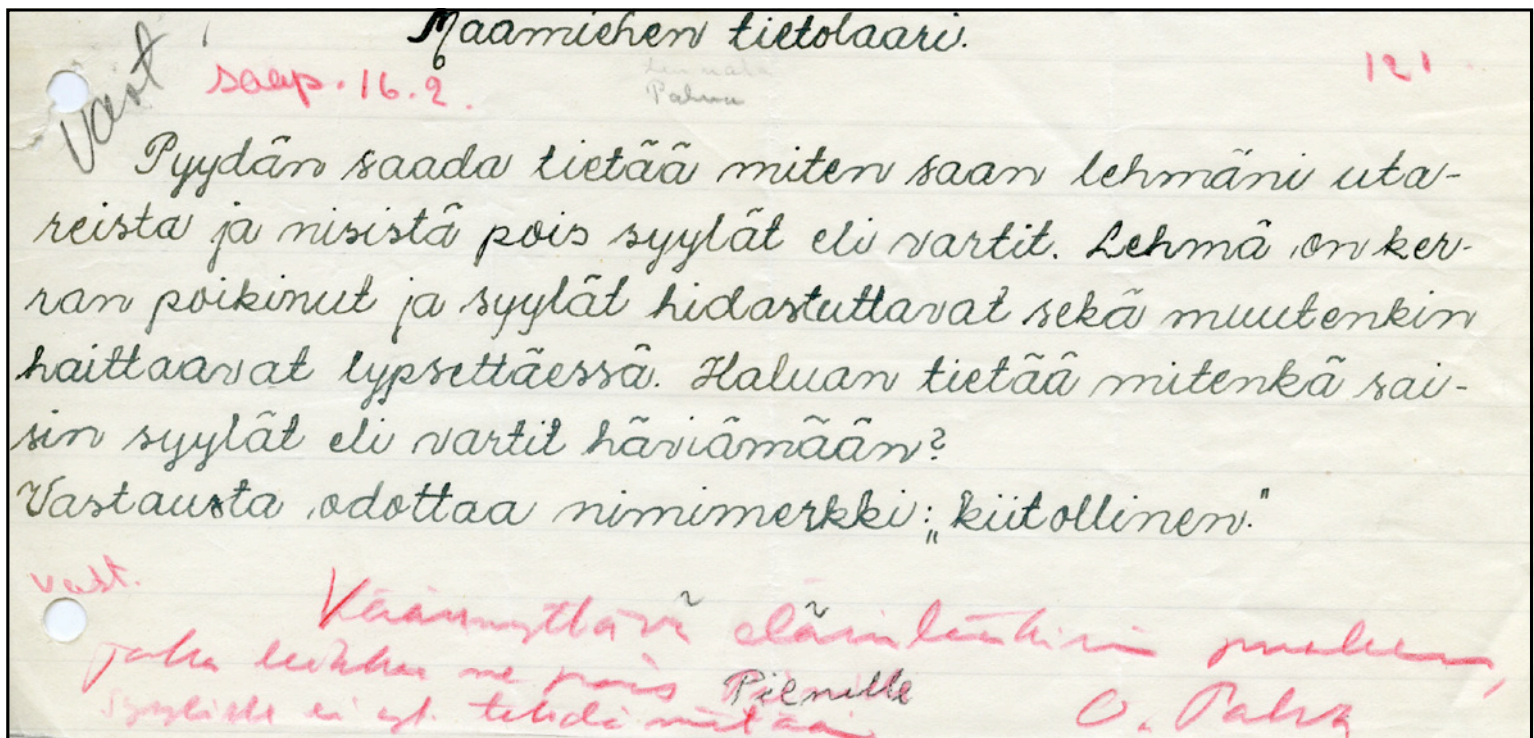 Maamiehen tietolaari.
Vast
saap. 16.2.
Palva
121
Pyydän saada tietää miten saan lehmäni uta-
reista ja nisistä pois syylät eli vartit. Lehmä on ker-
ran poikinut ja syylät hidastuttavat sekä muutenkin
haittaavat lypsettäessä. Haluan tietää mitenkä sai-
sin syylät eli vartit häviämään?
Vastausta odottaa nimimerkki: „kiitollinen."
vast.
Käännyttävä eläinlääkärin puoleen,
joka leikkaa ne pois Pienille
syylille ei voi tehdä mitään
O. Palva